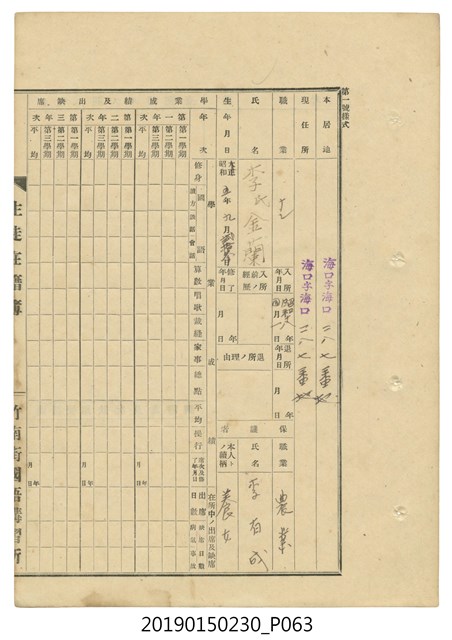 第一號樣式
本居地
海口字海口二八七番地
現住所
海口字海口二八七番地
職業
入所年月日
年
月
日
退所年月日
年
月
日
職業
農業
氏名
李氏金蘭
入所前ノ經歷
退所ノ理由
保護者
氏名
李有成
生年月日
大正
昭和
年
月
修了年月日
年
月
日
本人トノ續柄
養女
學年次
學業成績及出缺席
第一年次
第一學期
第二學期
第三學期
平均
第二年次
第一學期
第二學期
第三學期
平均
修身
國語
算數
唱歌
裁縫
家事
總點
平均
操行
在所中ノ出席及缺席
出席日數
月
日
年
生徒在籍簿
竹南街國語講習所
20190150230_P063